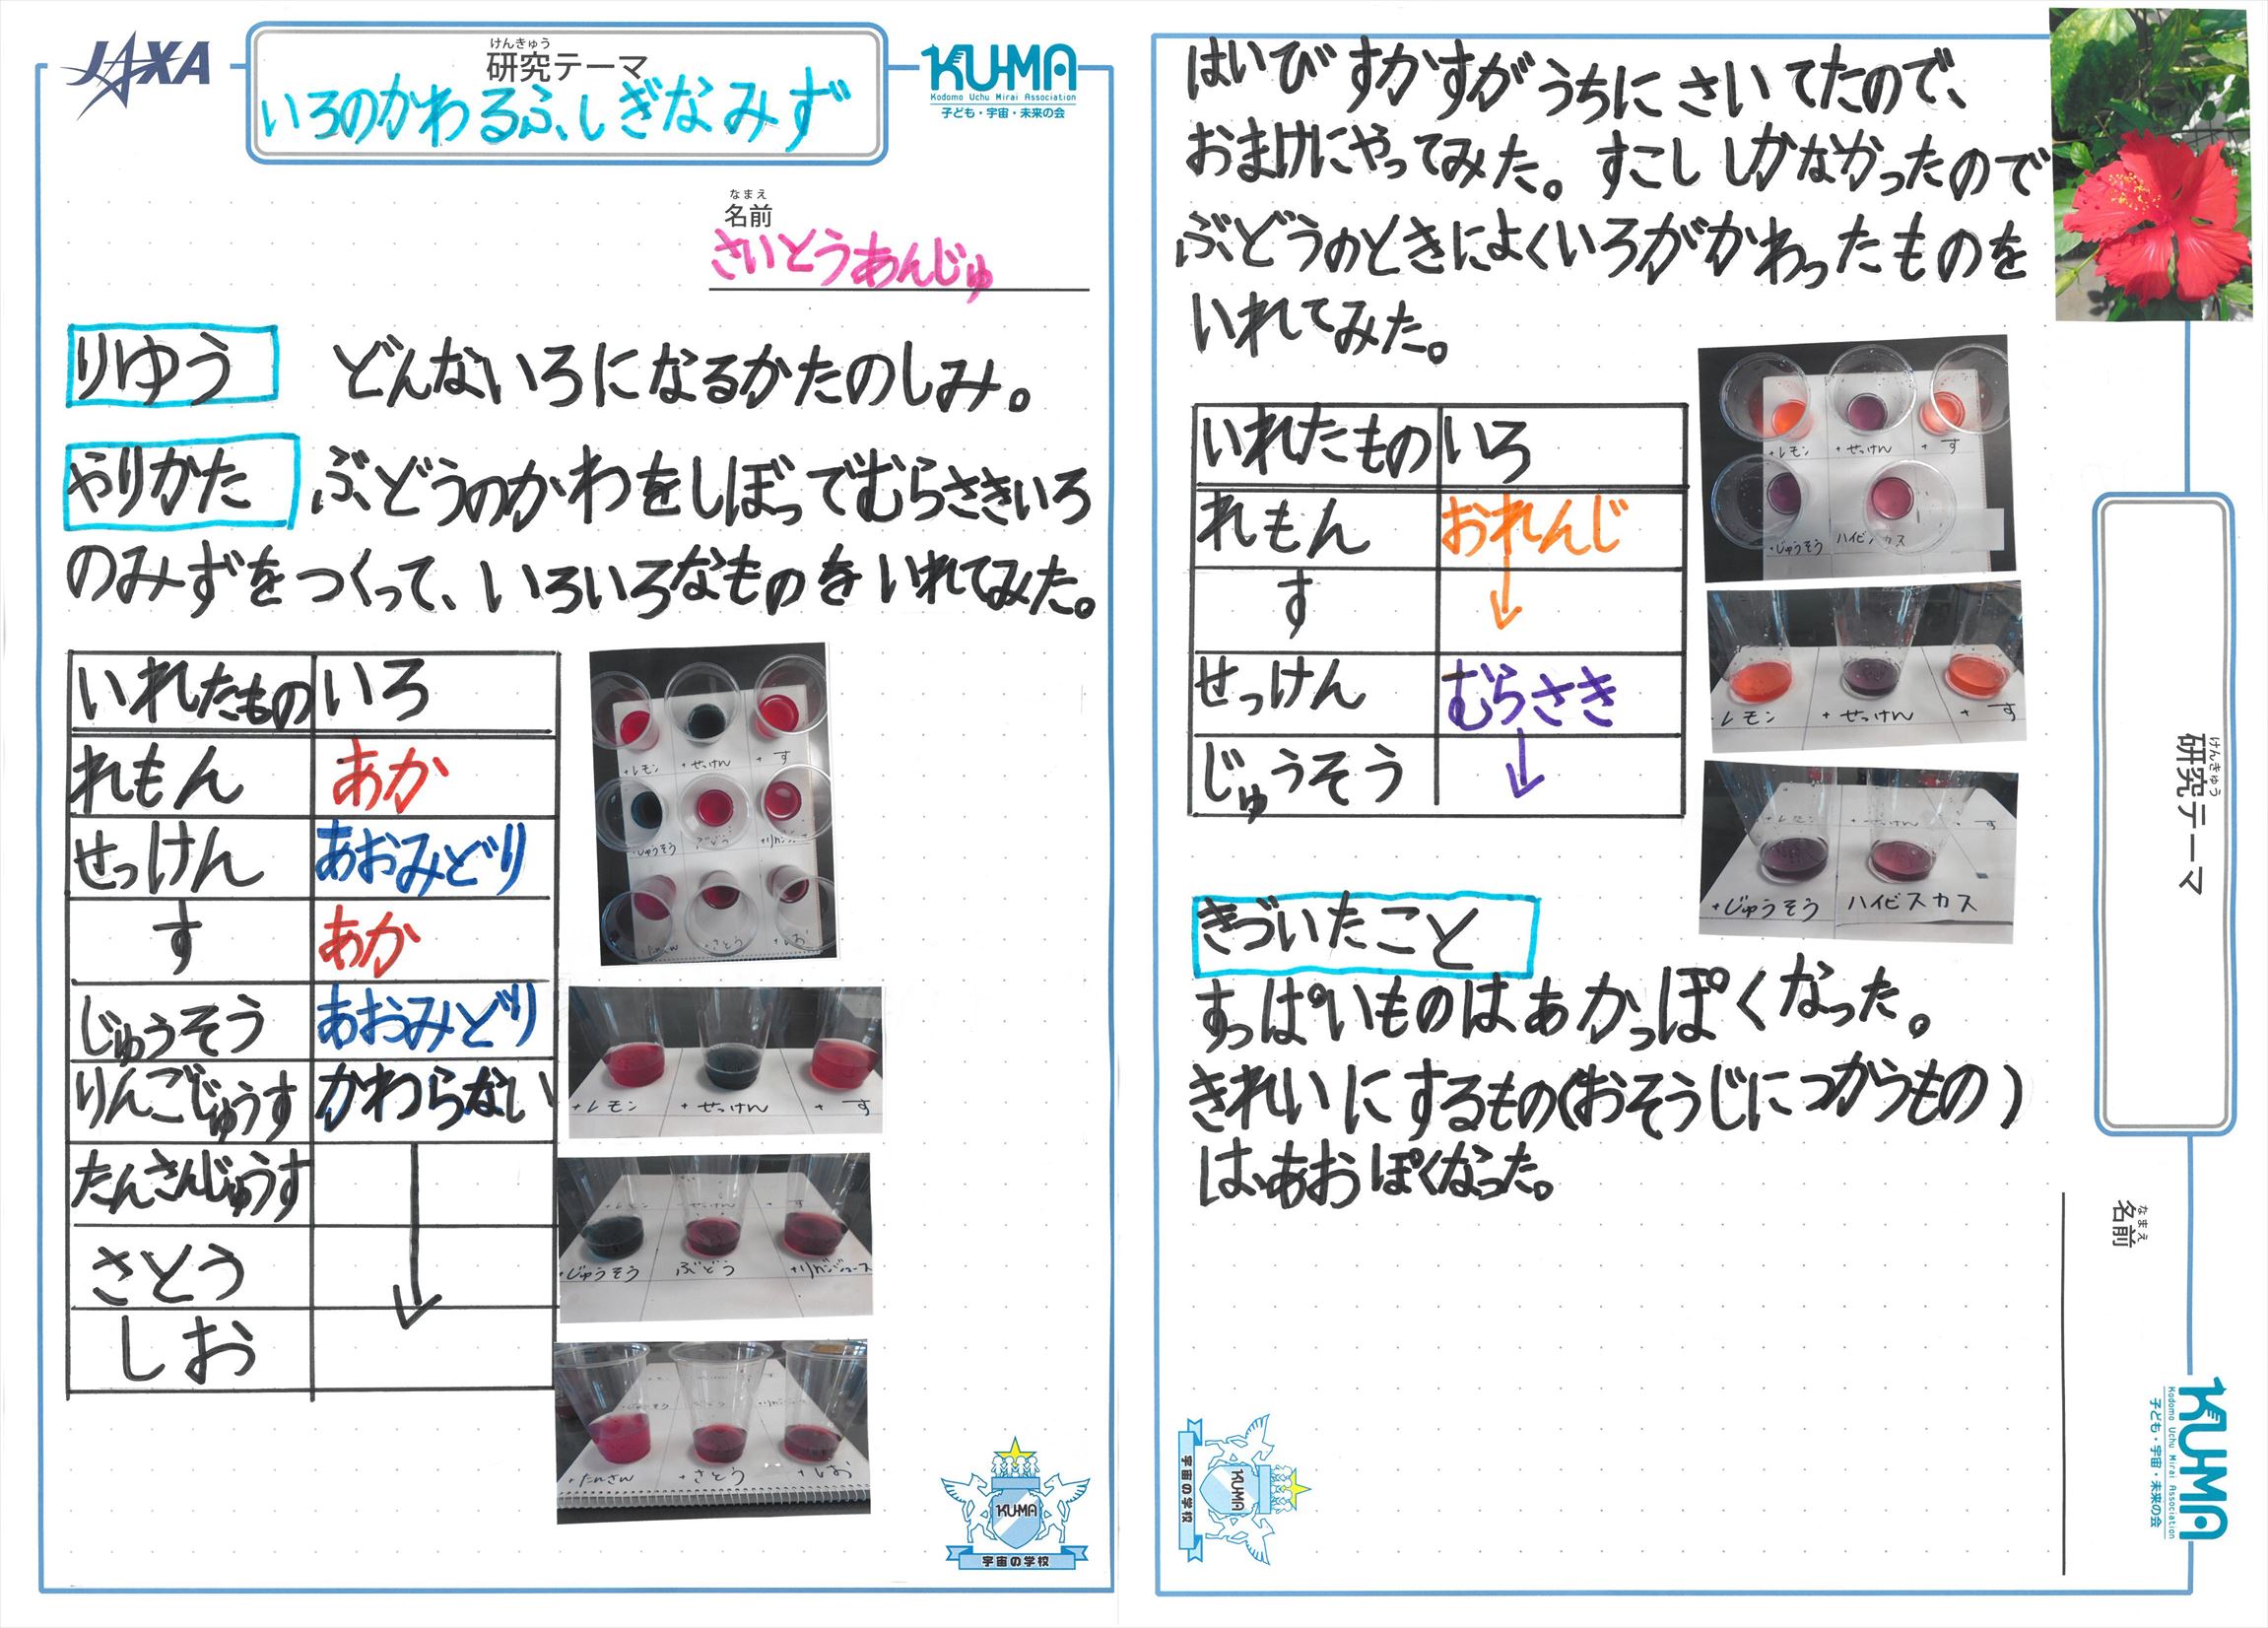 JAXA
けんきゅう
研究テーマ
いろのかわるふしぎなみず
KU-MA
Kodomo Uchu Mirai Association
子ども・宇宙・未来の会
なまえ
名前
さいとうあんじゅ
りゆう どんないろになるかたのしみ。
やりかた ぶどうのかわをしぼってむらさきいろ
のみずをつくって、いろいろなものをいれてみた。
いれたもの いろ
れもん あか
せっけん あおみどり
す あか
じゅうそう あおみどり
りんごじゅうす かわらない
たんさんじゅうす ↓
さとう
しお
+レモン +せっけん +す
+じゅうそう ぶどう
+さとう +しお
+レモン +せっけん +す
+じゅうそう ぶどう +リンゴジュース
+たんさん +さとう +しお
KU-MA
宇宙の学校
はいびすかすがうちにさいてたので、
おまけにやってみた。すこししかなかったので
ぶどうのときによくいろがかわったものを
いれてみた。
いれたもの いろ
れもん おれんじ
す ↓
せっけん むらさき
じゅうそう ↓
+レモン +せっけん +す
+じゅうそう ハイビスカス
レモン +せっけん +す
+じゅうそう ハイビスカス
きづいたこと
すっぱいものはあかっぽくなった。
きれいにするもの(おそうじにつかうもの)
は、あおぽくなった。
けんきゅう
研究テーマ
なまえ
名前
KU-MA
Kodomo Uchu Mirai Association
子ども・宇宙・未来の会
KU-MA
宇宙の学校